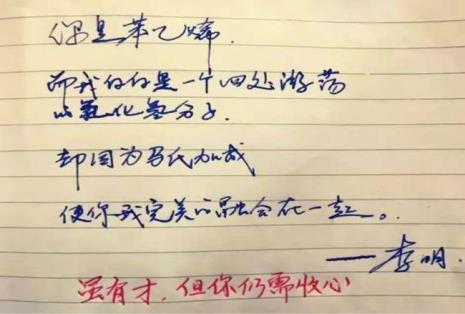 你是苯乙烯.
而我仅仅是一个四处游荡
的氯化氢分子.
却因为马氏加成
使你我完美的融合在一起。
——李明.
虽有才,但你仍需收心